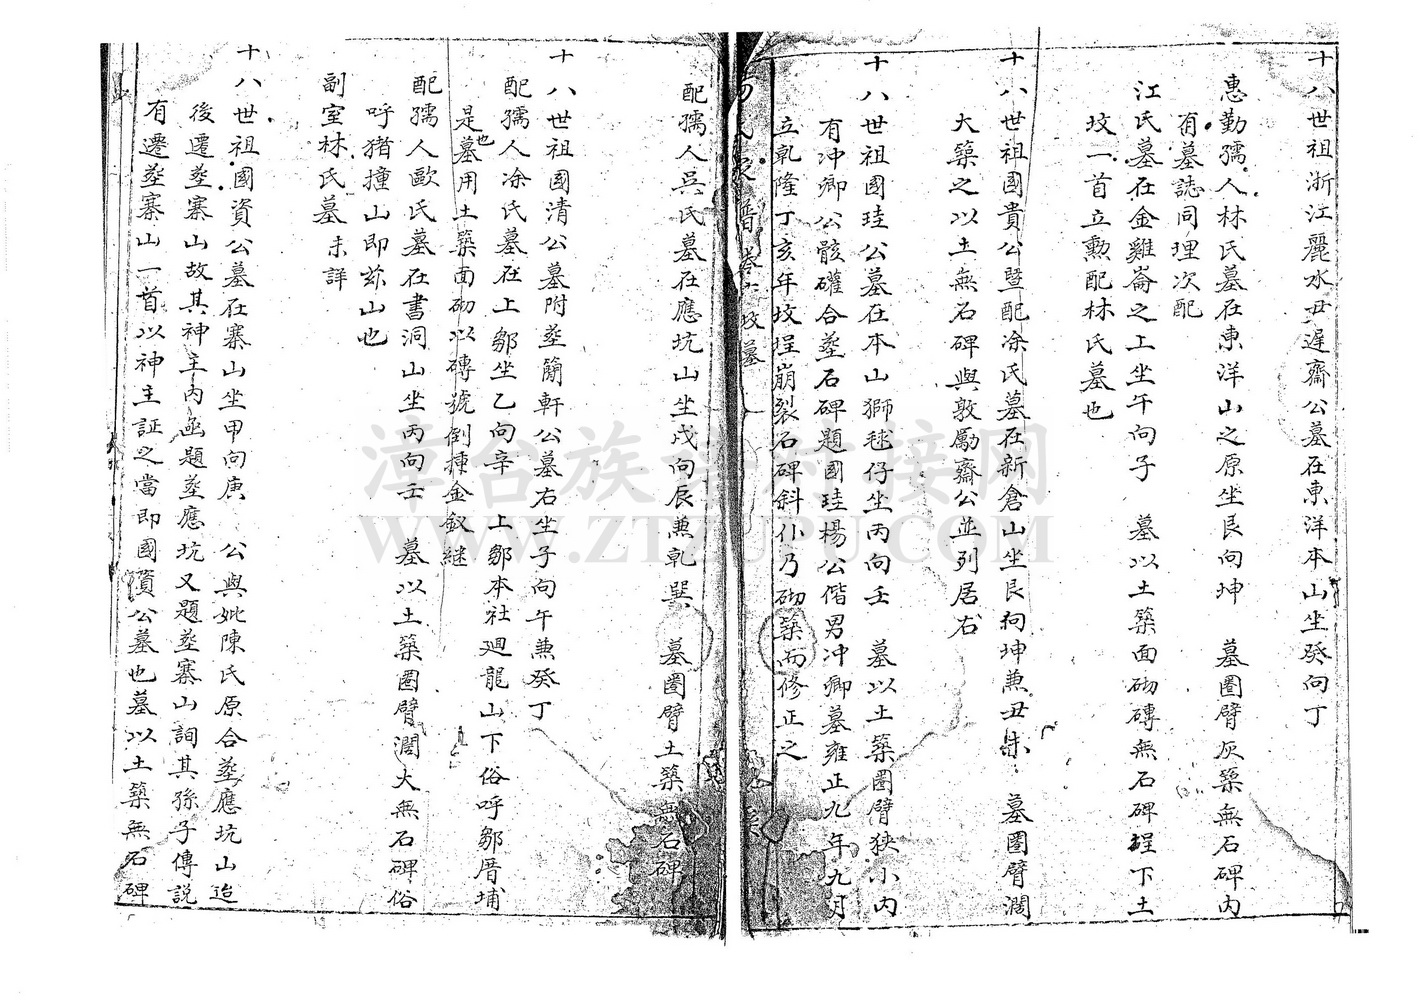 十八世祖浙江麗水尹遲齋公墓在東洋本山坐癸向丁
惠勤孺人林氏墓在東洋山之原坐艮向坤　墓圈臂灰築無石碑內
有墓誌同埋次配
江氏墓在金雞崙之上坐午向子　墓以土築面砌磚無石碑埕下土
坟一首立勲配林氏墓也
十八世祖國貴公暨配凃氏墓在新倉山坐艮向坤兼丑未　墓圈臂濶
大築之以土無石碑與敦勵齋公並列居右
十八世祖國珪公墓在本山獅毬仔坐丙向壬　墓以土築圈臂狹小內
有冲卿公骸礶合塟石碑題國珪楊公偕男冲卿墓雍正九年九月
立乾隆丁亥年坟埕崩裂石碑斜仆乃砌築而修正之
氏家譜卷 坟墓
配孺人吳氏墓在應坑山坐戌向辰兼乾巽　墓圈臂土築無石碑
十八世祖國清公墓附塟簡軒公墓右坐子向午兼癸丁
配孺人凃氏墓在上鄒坐乙向辛　上鄒本社廻龍山下俗呼鄒厝埔
是也墓用土築面砌以磚號倒揀金釵継
配孺人歐氏墓在書洞山坐丙向壬　墓以土築圈臂濶大無石碑俗
呼猪撞山即茲山也
副室林氏墓未詳
十八世祖國資公墓在寨山坐甲向庚　公與妣陳氏原合塟應坑山迨
後遷塟寨山故其神主內函題塟應坑又題塟寨山詢其孫子傳説
有遷塟寨山一首以神主証之當即國資公墓也墓以土築無石碑
漳台族谱对接网
WWW.ZTZUPU.COM